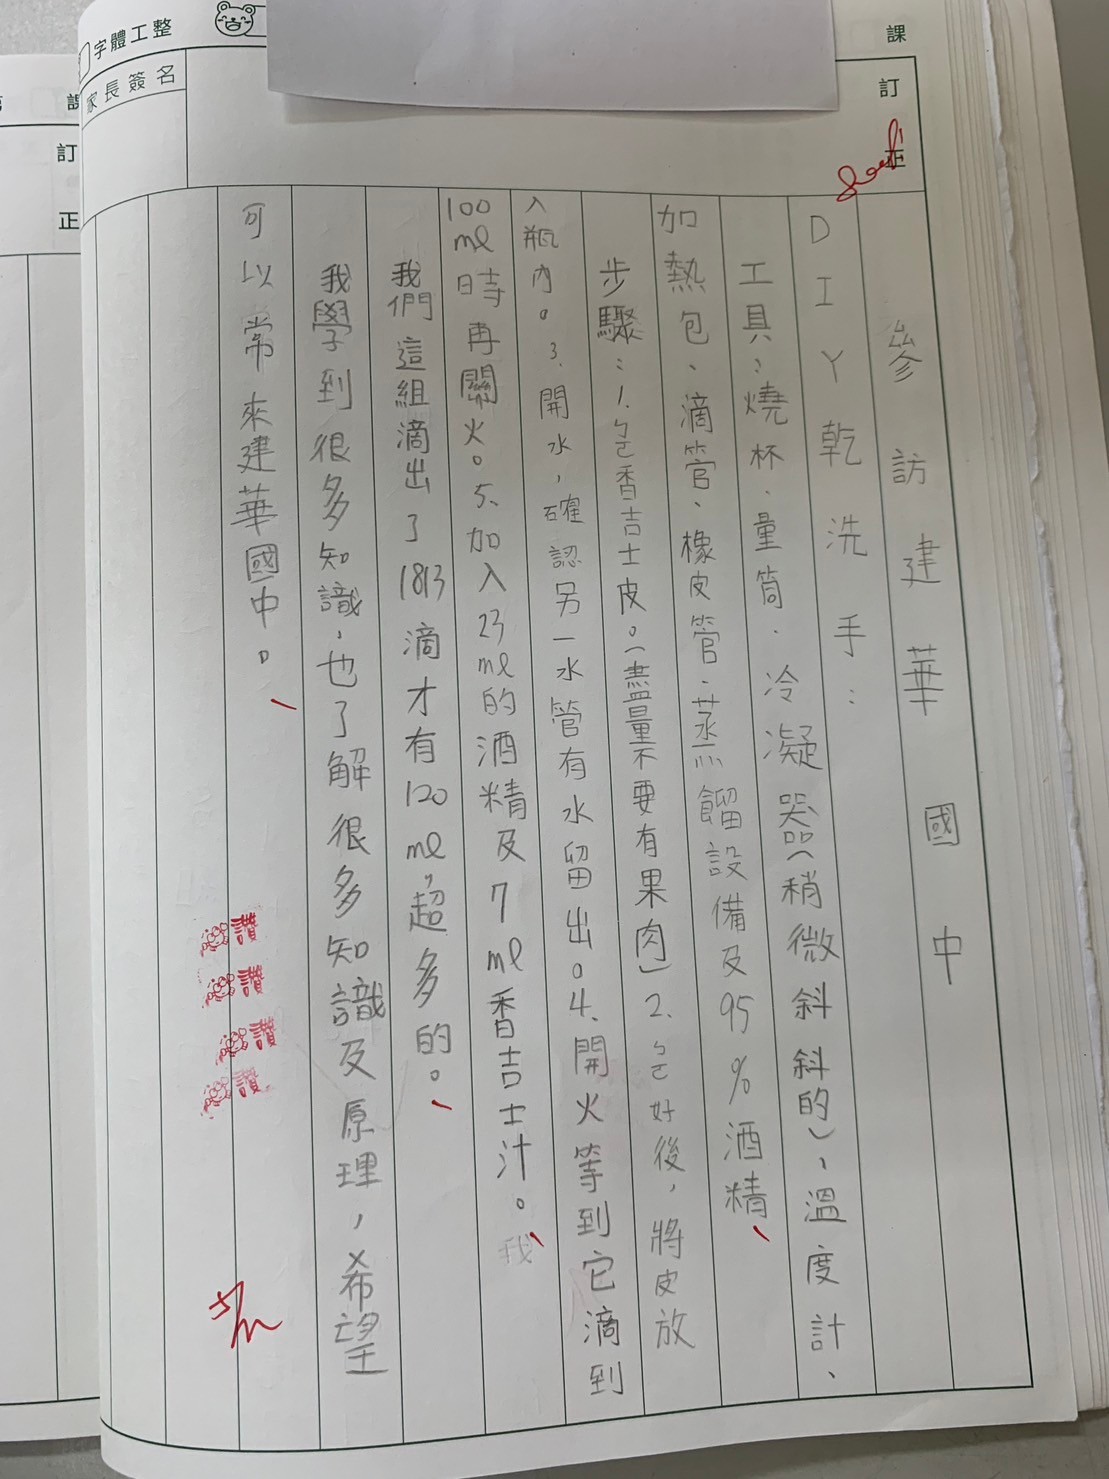 字體工整
家長簽名
課
訂
正
Good!
參訪建華國中
DIY乾洗手：
工具：燒杯、量筒、冷凝器(稍微斜斜的)、溫度計、
加熱包、滴管、橡皮管、蒸餾設備及95%酒精
步驟：1.ㄅㄛ香吉士皮。(盡量不要有果肉)2.ㄅㄛ好後，將皮放
入瓶內。3.開水，確認另一水管有水留出。4.開火等到它滴到
100ml時再關火。5.加入23ml的酒精及7ml香吉士汁。我
我們這組滴出了1813滴才有120ml，超多的。
我學到很多知識，也了解很多知識及原理，希望
可以常來建華國中。
讚
讚
讚
讚
課
訂
正